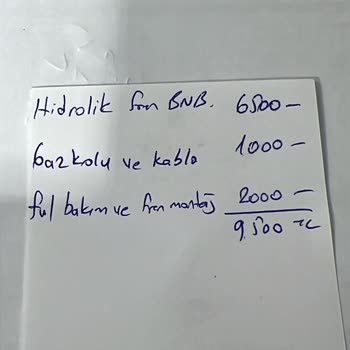 Hidrolik fren BNB. 6500 —
Gazkolu ve kablo 1000 —
ful bakım ve fren montaj 2000 —
9.500 TL